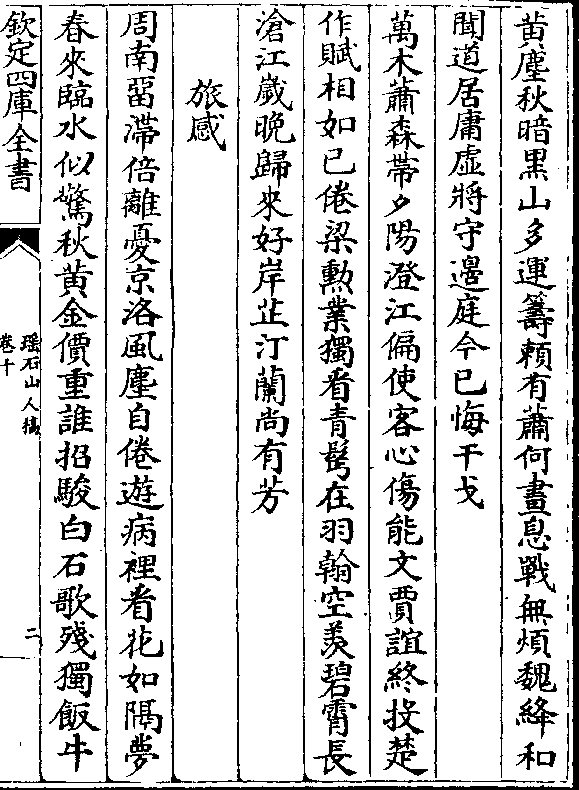 黄塵秋暗黒山多運籌頼有蕭何畫息戰無煩魏絳和
聞道居庸虚將守邊庭今已悔干戈
萬木蕭森帶夕陽澄江偏使客心傷能文賈誼終投楚
作賦相如已倦梁勲業獨看青髩在羽翰空羨碧霄長
滄江嵗晚歸來好岸芷汀蘭尚有芳
旅感
周南留滯倍離憂京洛風塵自倦遊病裡看花如隔夢
春來臨水似驚秋黄金價重誰招駿白石歌殘獨飯牛
欽定四庫全書
瑶石山人稿
卷十
二